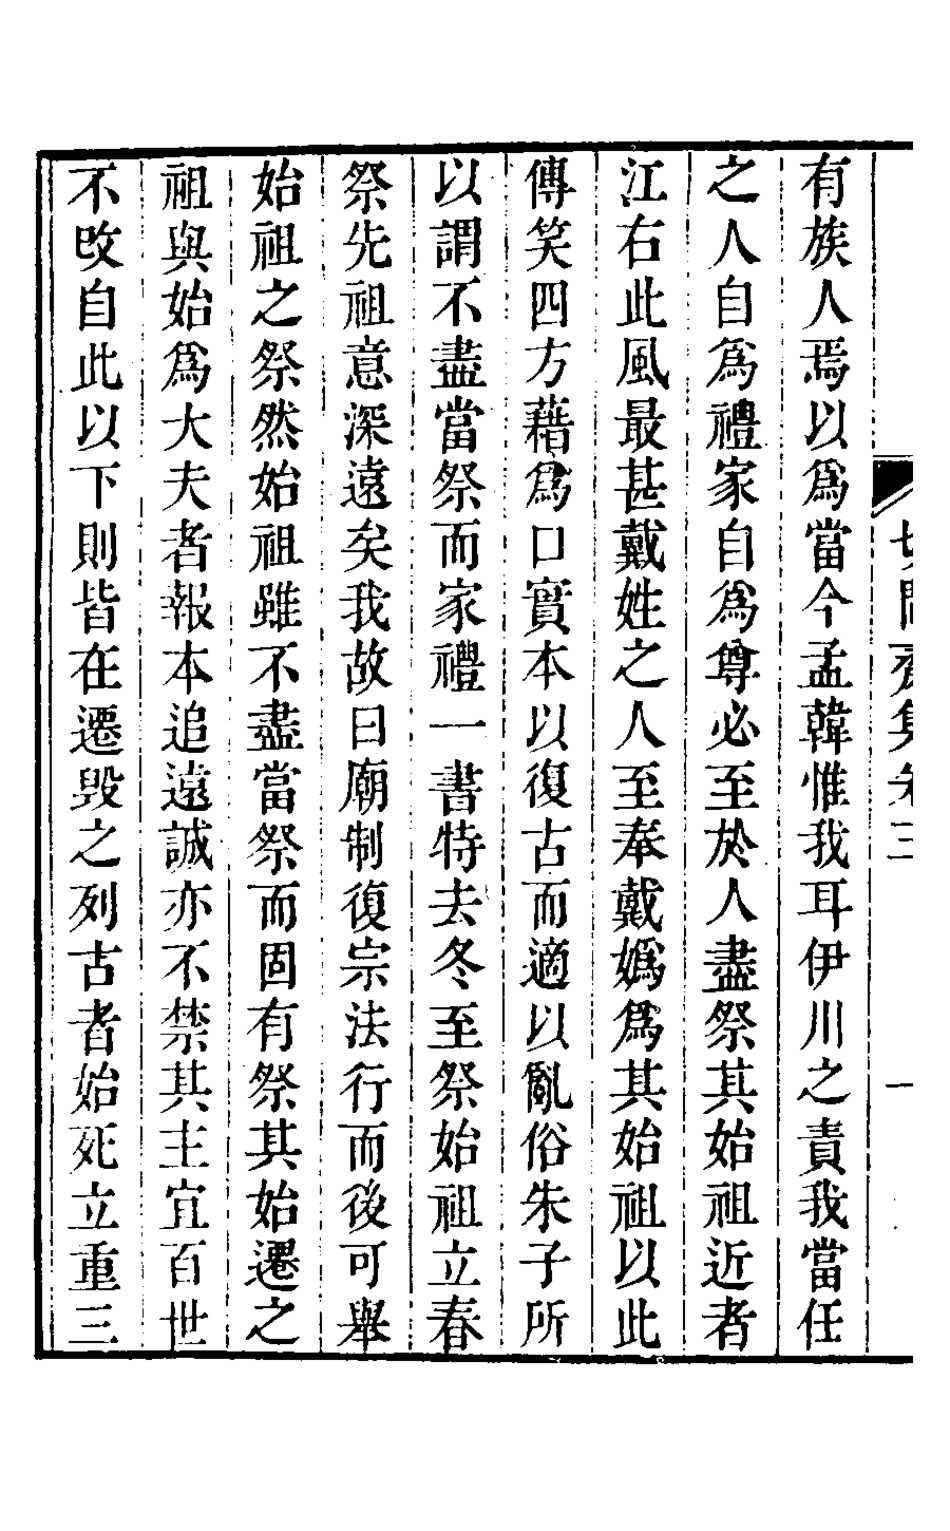 切問齋集卷三
一
有族人焉以爲當今孟韓惟我耳伊川之責我當任
之人自爲禮家自爲尊必至於人盡祭其始祖近者
江右此風最甚戴姓之人至奉戴嬀爲其始祖以此
傳笑四方藉爲口實本以復古而適以亂俗朱子所
以謂不盡當祭而家禮一書特去冬至祭始祖立春
祭先祖意深遠矣我故曰廟制復宗法行而後可舉
始祖之祭然始祖雖不盡當祭而固有祭其始遷之
祖與始爲大夫者報本追遠誠亦不禁其主宜百世
不改自此以下則皆在遷毁之列古者始死立重三